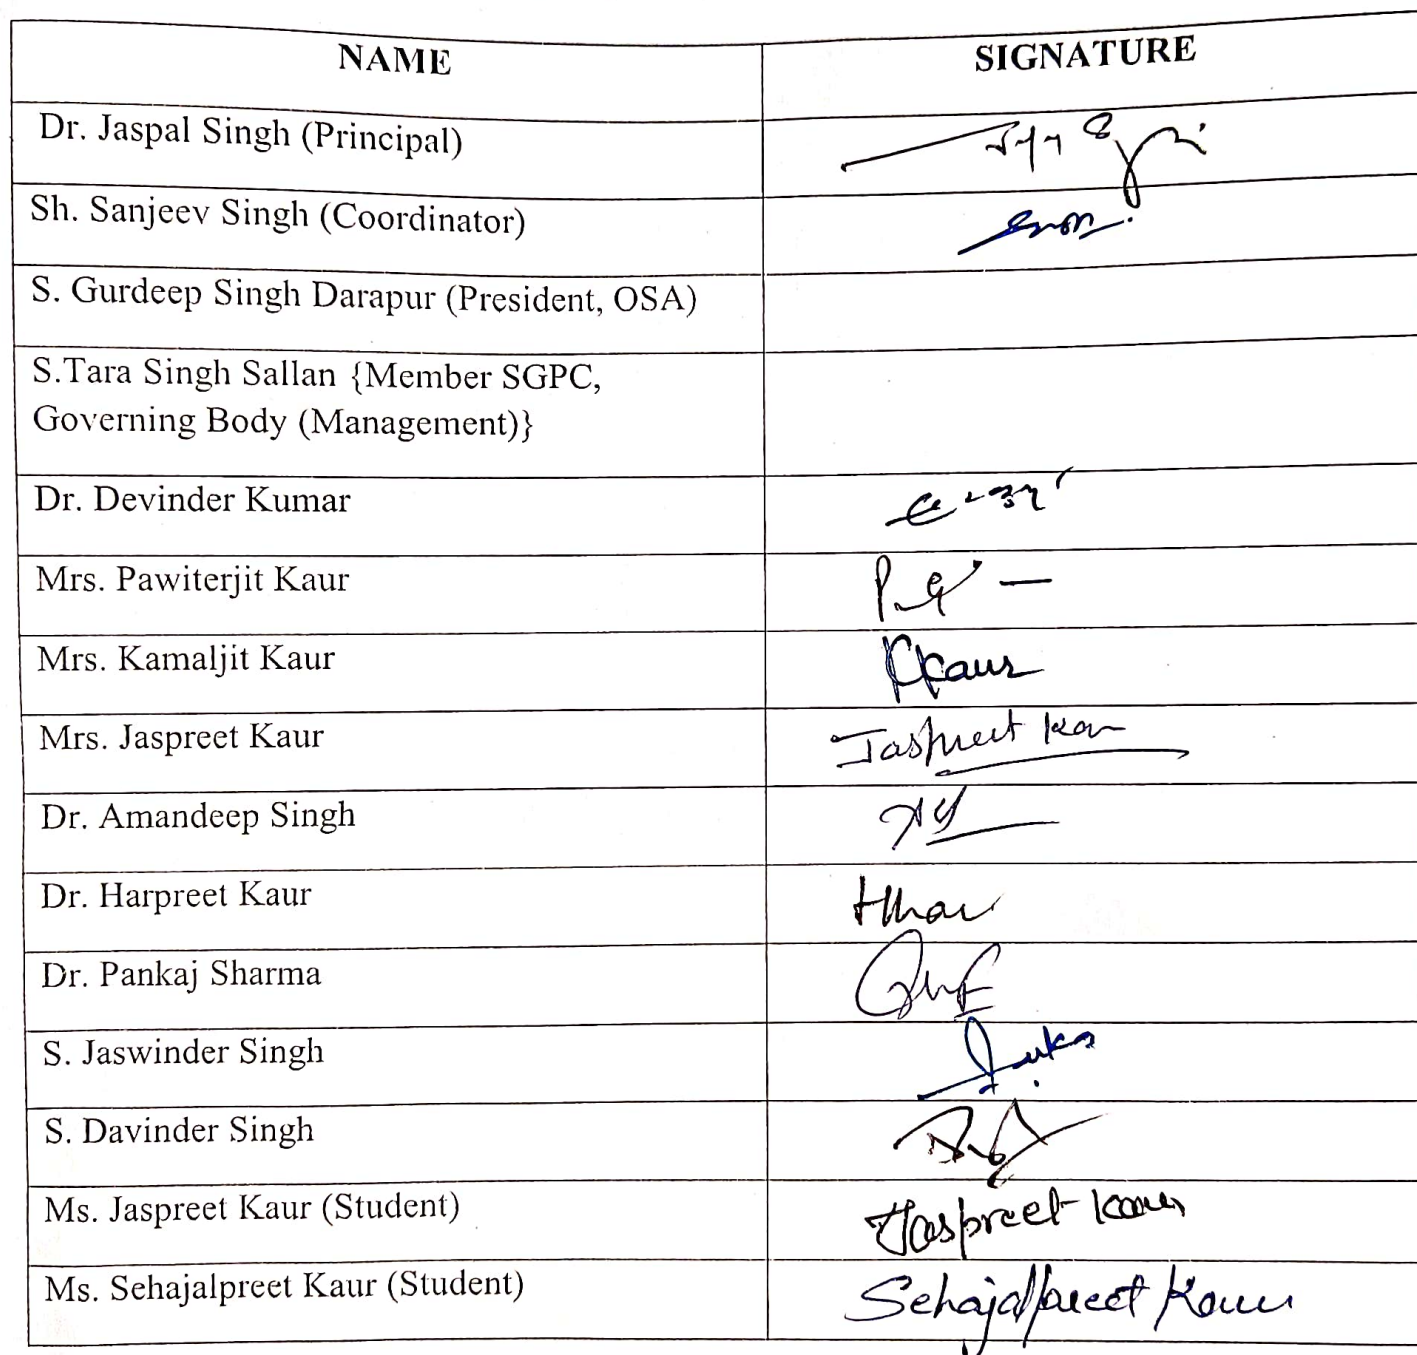 NAME SIGNATURE
Dr. Jaspal Singh (Principal)
Sh. Sanjeev Singh (Coordinator)
S. Gurdeep Singh Darapur (President, OSA)
S.Tara Singh Sallan {Member SGPC,
Governing Body (Management)}
Dr. Devinder Kumar
Mrs. Pawiterjit Kaur
Mrs. Kamaljit Kaur Kkaur
Mrs. Jaspreet Kaur Jaspreet Kau
Dr. Amandeep Singh
Dr. Harpreet Kaur
Dr. Pankaj Sharma
S. Jaswinder Singh
S. Davinder Singh
Ms. Jaspreet Kaur (Student) Jaspreet Kaur
Ms. Sehajalpreet Kaur (Student) Sehajalpreet Kaur